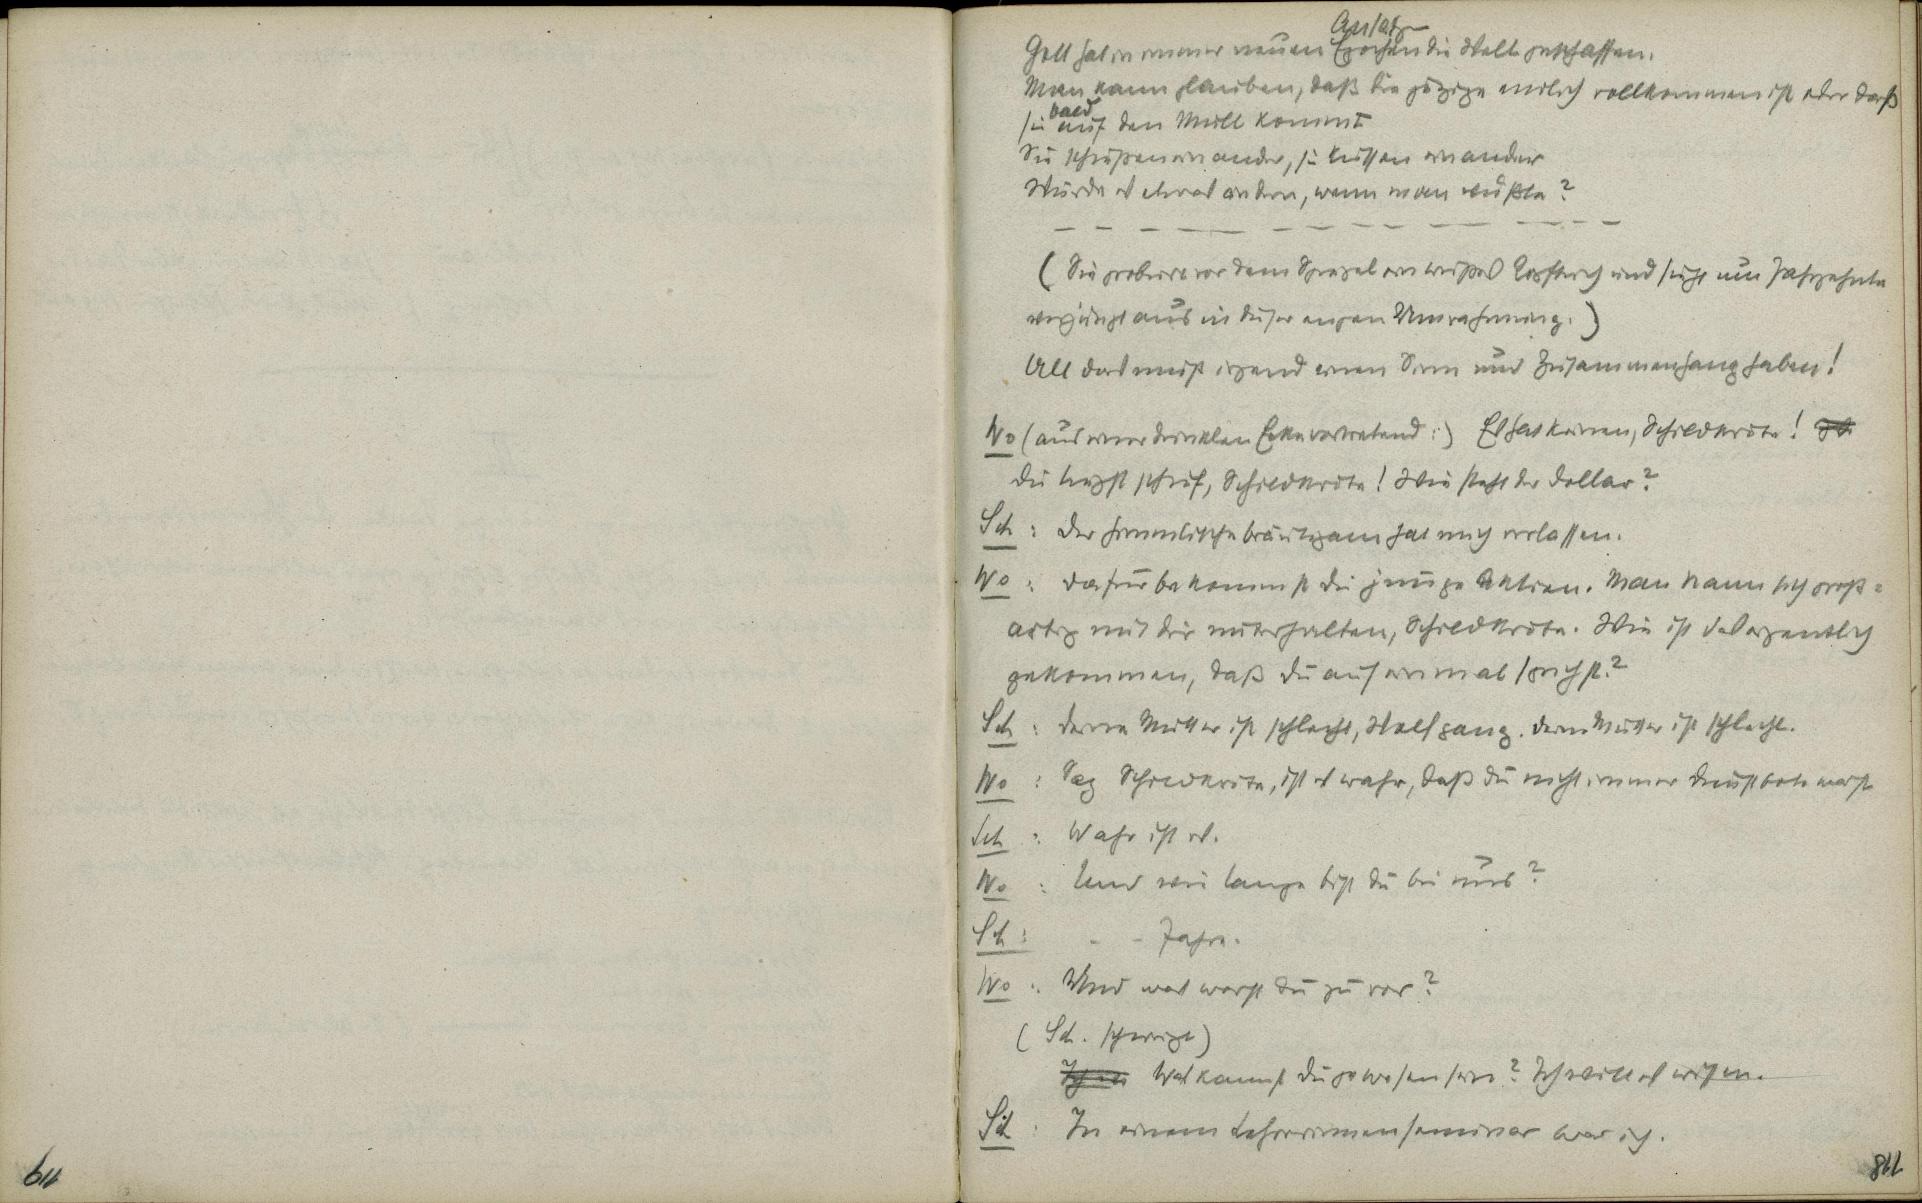 Ansatz
Gott hat in immer neuen Epochen die Welt geschaffen.
Man kann glauben, daß die jetzige endlich vollkommen ist oder daß
bald
sie auf den Müll kommt
Sie schießen einander, sie küssen einander
Würde es etwas ändern, wenn man wüßte?
(Sie probiert vor dem Spiegel ein weißes Kopftuch und sieht um Jahrzehnte
verjüngt aus in dieser engen Umrahmung.)
All das muß irgend einen Sinn und Zusammenhang haben!
Wo (aus einer dunklen Ecke vortretend:) Es hat keinen, Schildkröte!
Du liegst schief, Schildkröte! Wie steht der Dollar?
Sch: Der himmlische Bräutigam hat mich verlassen.
Wo: Dafür bekommst du junge Aktien. Man kann sich groß=
artig mit dir unterhalten, Schildkröte. Wie ist das eigentlich
gekommen, daß du auf einmal sprichst?
Sch: Deine Mutter ist schlecht, Wolfgang. Deine Mutter ist schlecht.
Wo: Sag Schildkröte, ist es wahr, daß du nicht immer Dienstbote warst
Sch: Wahr ist es.
Wo: Und wie lange bist du bei uns?
Sch: - - Jahre.
Wo: Und was warst du zuvor?
(Sch. schweigt)
Was kannst du gewesen sein? Ich will es wissen.
Sch: In einem Lehrerinnenseminar war ich.
119
118